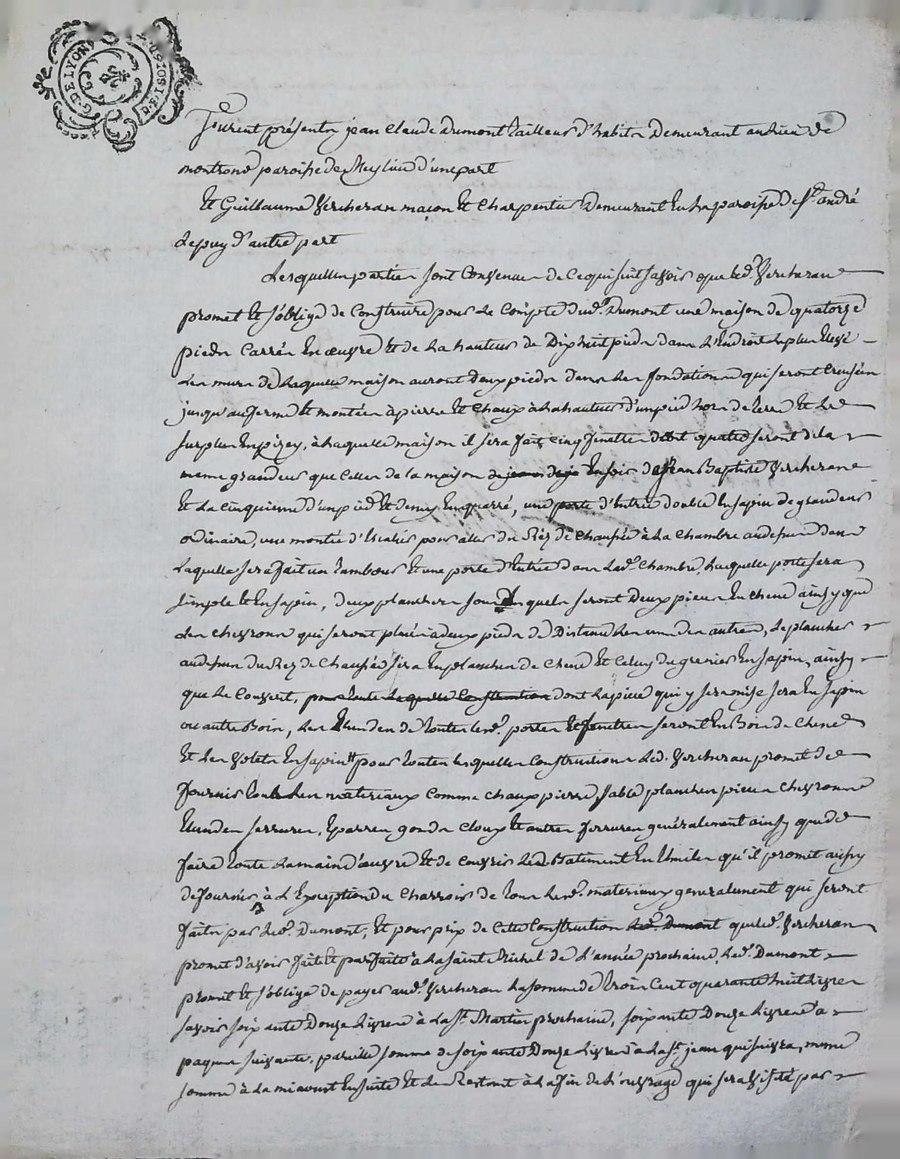 G. DE LYON
Furent présents jean Claude Dumont tailleur d'habits Demeurant au lieu de
montrond paroisse de Meylieu d'une part
Et Guillaume Vercheran maçon Et Charpentier Demeurant En la paroisse de St. andré
Le puy d'autre part
Lesquelles parties sont Convenues de Ce qui suit savoir que led. Vercheran
promet Et s'oblige de Construire pour Le Compte dud. Dumont une maison de quatorze
pieds Carrés En œuvre Et de La hauteur de Dixhuit pieds dans L'Endroit Le plus Elevé
Les murs de Laquelle maison auront Deux pieds dans Les fondations qui seront Creusées
jusqu'au ferme Et montées à pierre Et Chaux à La hauteur d'un pied hors de terre Et Le
surplus En pizey, à Laquelle maison il sera fait Cinq fenetres dont quatre seront de la
meme grandeur que Celles de La maison de Jean Baptiste Vercheran
Et La Cinquieme d'un pied Et demy En quarré, une porte d'Entrée double En sapin de grandeur
ordinaire, une montée d'Escalier pour aller du Réz de Chaussée à La Chambre au dessus dans
Laquelle sera fait un tambour Et une porte d'Entrée dans Lad. Chambre, Laquelle porte sera
simple Et En sapin, deux planchers sous Lesquels seront Deux pieces En chene ainsy que
Les chevrons qui seront placés à deux pieds de Distance Les uns des autres, Le plancher
au dessus du Réz de Chaussée sera En planches de Chene Et Celuy du grenier En sapin, ainsy
que Le Couvert, pour toute Laquelle Construction dont La piece qui y sera mise sera En sapin
ou autre Bois, Les Etundes de toutes Lesd. portes Et fenetres seront En Bois de Chene
Et Les Volets En sapin pour toutes Lesquelles Constructions Led. Vercheran promet de
fournir tous Les materiaux Comme Chaux pierre, sable planches pieces Chevrons
Etundes serrures, Eparres gonds Cloux Et autres ferrures généralement ainsy que de
faire toute La main d'œuvre Et de Couvrir Led. Batiment En thuiles qu'il promet aussy
de fournir à L'Exception du Charrois de tous Lesd. materiaux generalement qui seront
faits par Led. Dumont, Et pour prix de Cette Construction Led. Dumont que led. Vercheran
promet d'avoir fait Et parfaite à La saint Michel de L'année prochaine, Led. Dumont
promet Et s'oblige de payer aud. Vercheran La somme de trois Cent quarante huit Livres
savoir soixante Douze Livres à La St. Martin prochaine, soixante Douze Livres à
paques suivante, pareille somme de soixante Douze Livres à La St. jean qui suivra, meme
somme à La mi aoust En suite Et Le Restant à La fin de L'ouvrage qui sera visité par